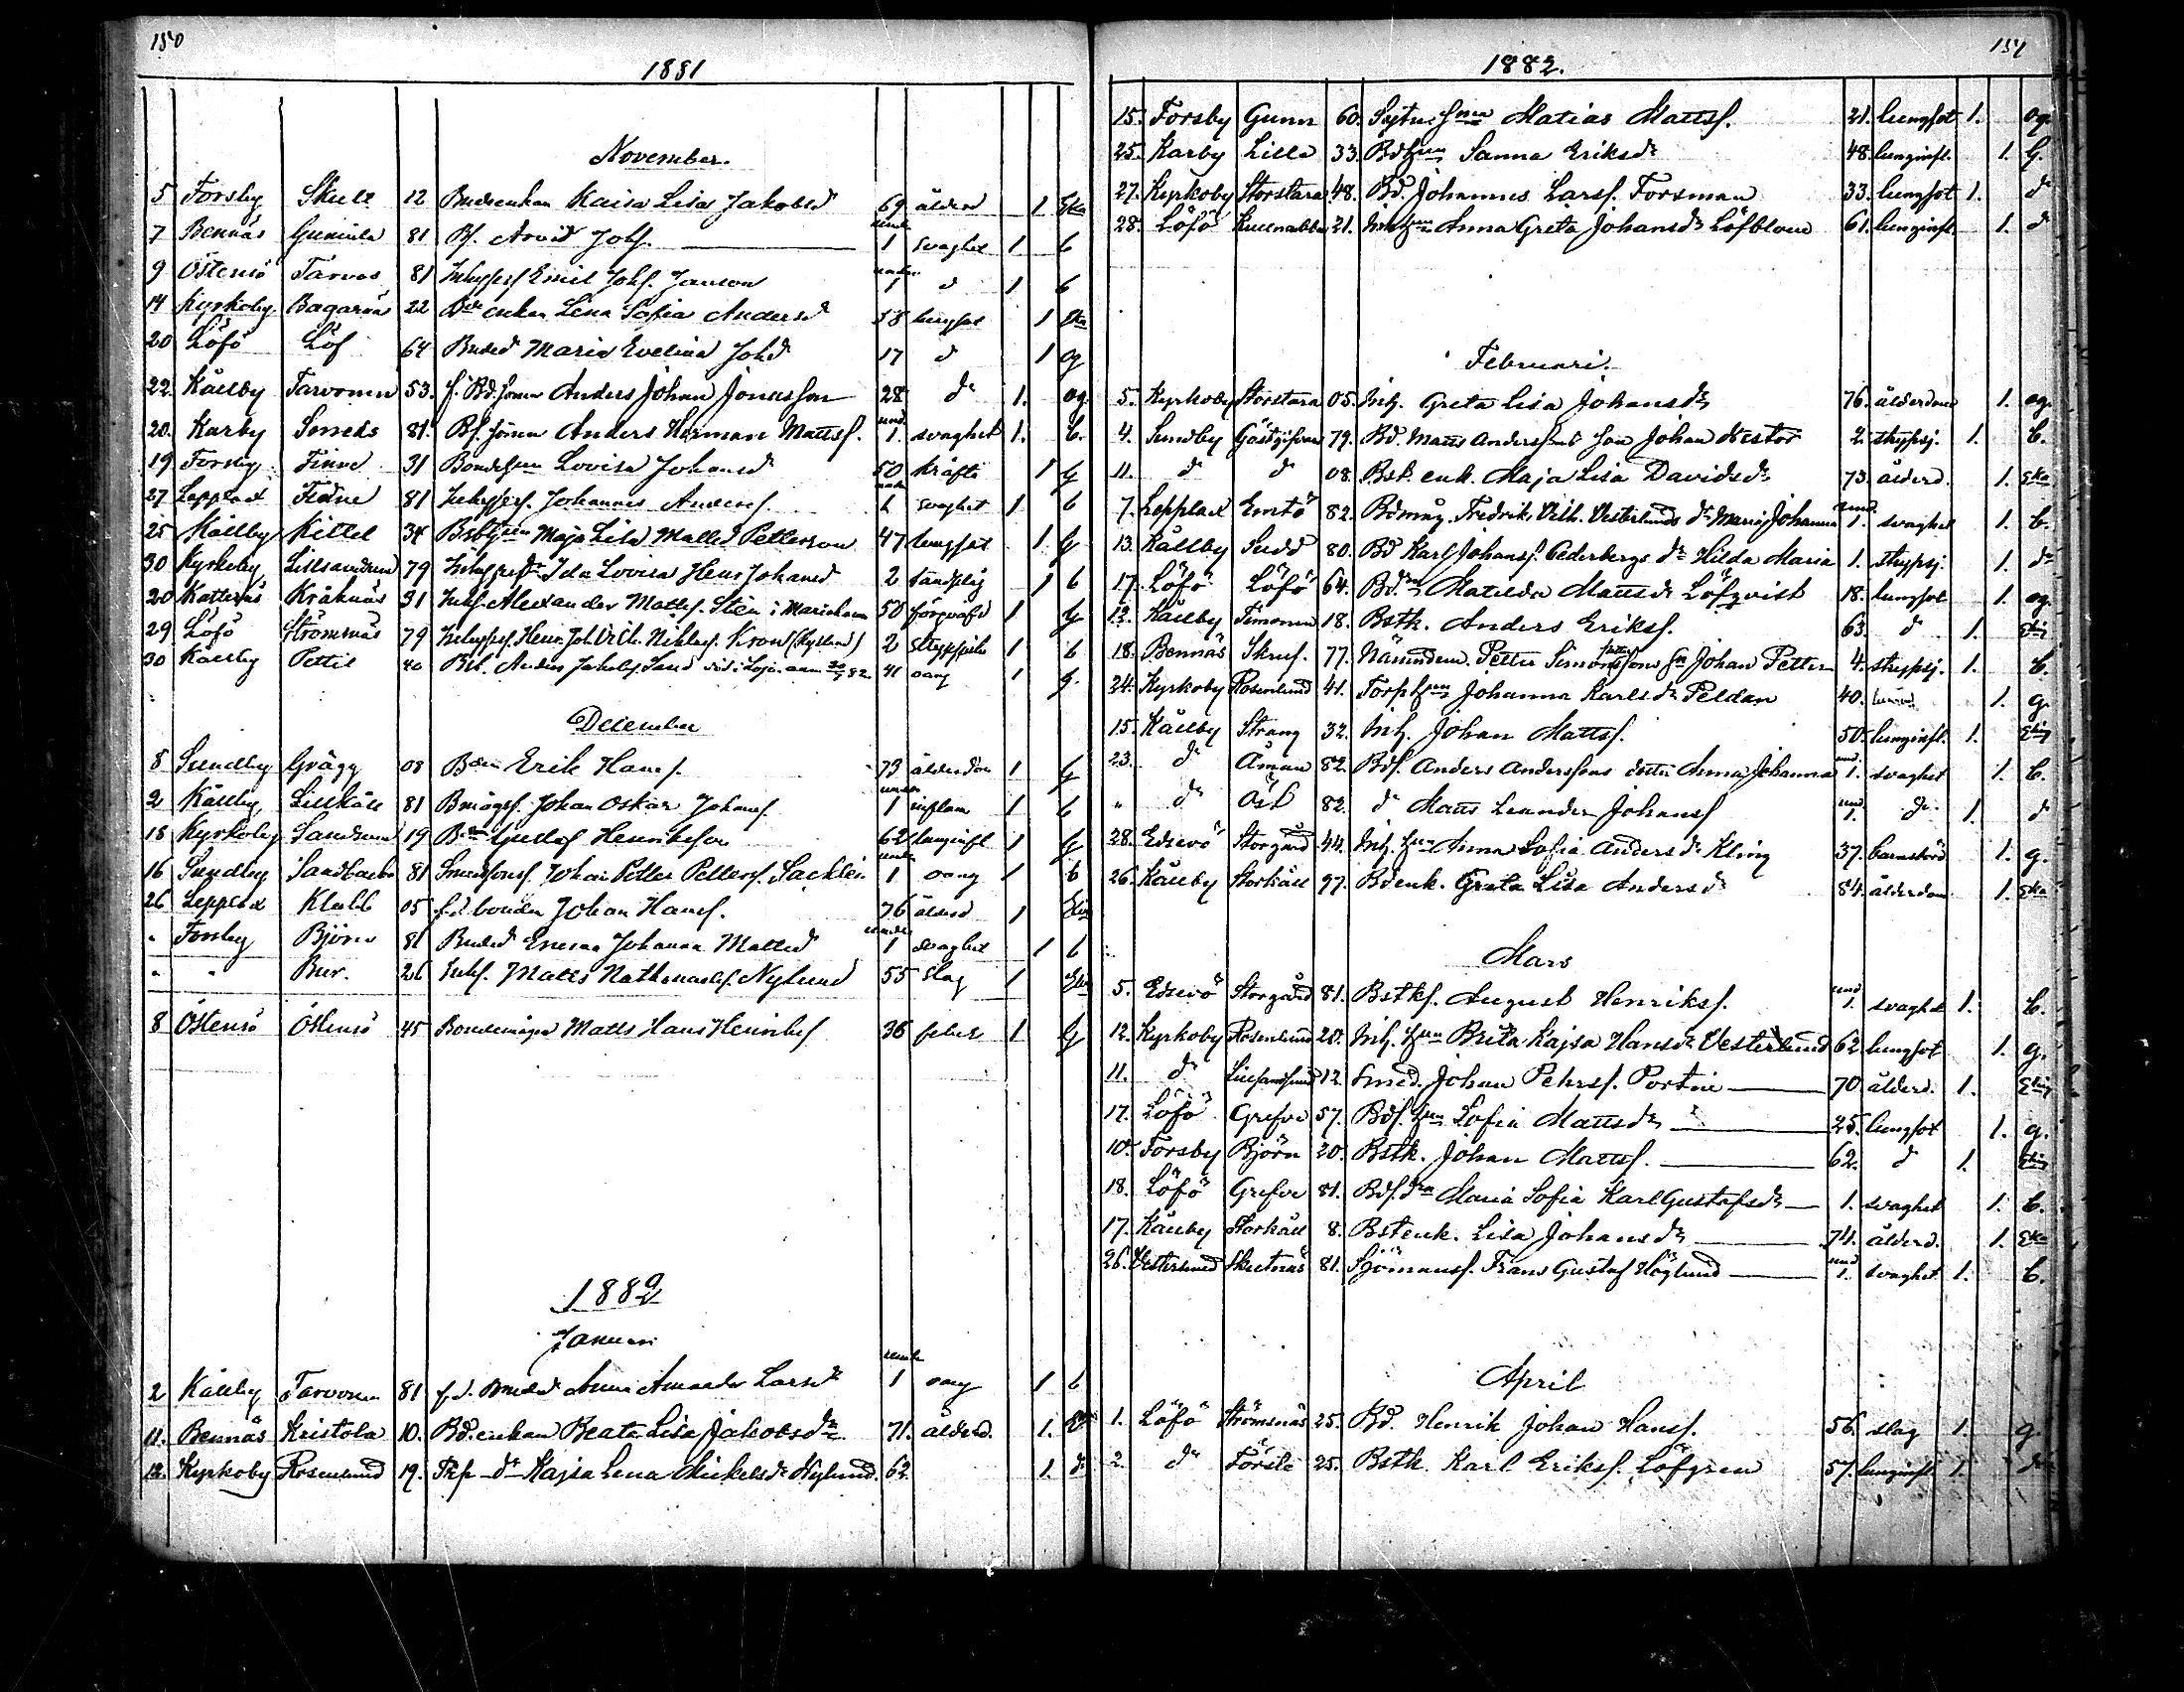 150
1881
November.
5 Forsby Skult 12 Budeenkan Kaisa Lisa Jakobsd 69 ålderd 1 Eka
7 Bennäs Gunnila 81 Bs. Arvid Johs. under 1 svaghet 1 b
9 Östensö Tarvos 81 Inhyses Emil Johs. Janson under 1 d 1 b
14 Kyrkoby Bagarnäs 22 Bdeenkan Lena Sofia Andersd 58 lungsot 1 Eka
20 Löfö Löf 64 Buded Maria Evelina Johd 17 d 1 og
22. Kållby Tarvonen 53. f. Bd. sonen Anders Johan Jonasson 28 do 1. og.
20. Karby Senneks 81. Bs. sonen Anders Herman Mattss. und. 1. svaghet 1. b.
19 Forsby Finne 31 Bondehun Lovisa Johansd 50 kräfta 1 g
27 Lepplax Fedne 81 Inhysess. Johannes Anderss. under 1 svaghet 1 b
25 Kållby Kittel 34 Bstkhun Maja Lisa Mattsd Petterson 47 lungsot 1 g
30 Kyrkoby Lillsandsund 79 Inhysesdr Ida Lovisa Henr Johansd 2 tandsprig 1 b
20 Katternäs Kråknäs 31 Inhs. Alexander Mattss. Sten i Mariehamn 50 1 g
29 Löfö Strömsnäs 79 Inhyses Henr. Joh. Vilh. Niklass. Krons (Kyrklund) 2 strypsjuka 1 b
30 Kållby Pettil 40 Bst. Anders Jakobss. Sand död i Loja anm 30/9 82. 41 oang 1 g.
December
8 Sundby Grägg 08 Bden Erik Hanss. 73 ålderdom 1 g
2 Kållby Lillkåll 81 Bmågss. Johan Oskar Johanss. under 1 inflam 1 b
18 Kyrkoby Sandsund 19 Bden Gustaf Henriksson 62 lunginfl 1 g
16 Sundby Sandbacka 81 Smedsons Johan Petter Petterss. Sacklén under 1 oang 1 b
26 Lepplax Klubb 05 f.d bonden Johan Hanss. 76 ålderd 1 Ekg
" Forsby Björn 81 Buded Emma Johanna Mattsd under 1 svaghet 1 b
" " Bur. 26 Inhs. Matts Nathanaelss. Nylund 55 slag 1 Ekg
8 Östensö Östensö 45 Bondemågen Matts Hans Henrikss 36 feber 1 g
1882
Januari
2 Kållby Tarvonen 81 f.d. Buded Anna Amanda Larsd under 1 oang 1 b
11. Bennäs Kristola 10. Bd. enkan Beata Lisa Jakobsdr 71. ålderd. 1. Eka
12. Kyrkoby Rosenlund 19. Trp do Kajsa Lena Mickelsdr Nylund. 62. 1. do
151
1882.
15. Forsby Gunn 60. Sytn. Snen Matias Mattss. 21. lungsot 1. og.
25. Karby Lille 33. Bdhun Sanna Eriksdr 48. lunginfl. 1. G.
27. Kyrkoby Storstara 48. Bd. Johannes Larss. Forsman 33. lungsot 1. do
28. Löfö Kuusnabba 21. Inhhun Anna Greta Johansdr Löfblom 61. lunginfl. 1. d
Februari.
5. Kyrkoby Storstara 05. Inh. Greta Lisa Johansdr 76. ålderdom 1. og.
4. Sundby Gästgifvars 79. Bd. Matts Anderssons Son Johan Nestor 2. strypsj. 1. b.
11. do do 08. Bst. enk. Maja Lisa Davidsdr 73. ålderd. 1. Eka
7. Lepplax Emtö 82. Bdmåg. Fredrik Vilh. Vesterlunds dr Maria Johanna und. 1. svaghet 1. b.
13. Kållby Sudd 80. Bd Karl Johanss. Cederbergs dr Hilda Maria 1. strypsj. 1. do
17. Löfö Löfö 64. Bdrn Matilda Mattsdr Löfqvist 18. lungsot 1. og
12. Kållby Simonen 18. Bstk. Anders Erikss. 63. d 1. Ekg
18. Bennäs Skruf. 77. Nämndem. Petter Simonssons Sn Johan Petter 4. strypsj. 1. b.
24. Kyrkoby Rosenlund 41. Torphun Johanna Karlsdr Peldan 40. 1. g.
15. Kållby Strang 32. Inh. Johan Mattss. 50. lunginfl. 1. Ekg
23. do Åman 82. Bds. Anders Anderssons dotter Anna Johanna und. 1. svaghet 1. b.
" do Öst 82. do Matts Leander Johanss und 1. do 1. d
28. Edsevö Storgård 44. Inh. hun Anna Sofia Andersdr Kling 37. barnsbörd 1. g.
26. Kållby Storkåll 97. Bdenk. Greta Lisa Andersdr 84. ålderdom 1. Eka
Mars
5. Edsevö Storgård 81. Bstks. August Henrikss. und 1. svaghet 1. b.
12. Kyrkoby Rosenlund 20. Inh. hun Brita Kajsa Hansdr Vesterlund 62 lungsot 1. g.
11. do Lillsandsund 12. Smed. Johan Pehrss. Portin 70 ålderd. 1. Ekg
17. Löfö Grefve 57. Bds. hun Sofia Mattsdr 25. lungsot 1. g.
10. Forsby Björn 20. Bstk. Johan Mattss. 62. d 1. Ekg
18. Löfö Grefve 81. Bds. dra Maria Sofia Karl Gustafsdr 1. svaghet 1. b.
17. Kållby Storkåll 8. Bstenk. Lisa Johansdr 74. ålderd. 1. Eka
26. Vestersund Skutnäs 81. Sjömanss. Frans Gustaf Höglund und 1. svaghet 1. b.
April
1. Löfö Strömsnäs 25. Bd. Henrik Johan Hanss. 56. slag 1. g.
2. do Förste 25. Bstk. Karl Erikss. Löfgren 57. lunginfl 1. do